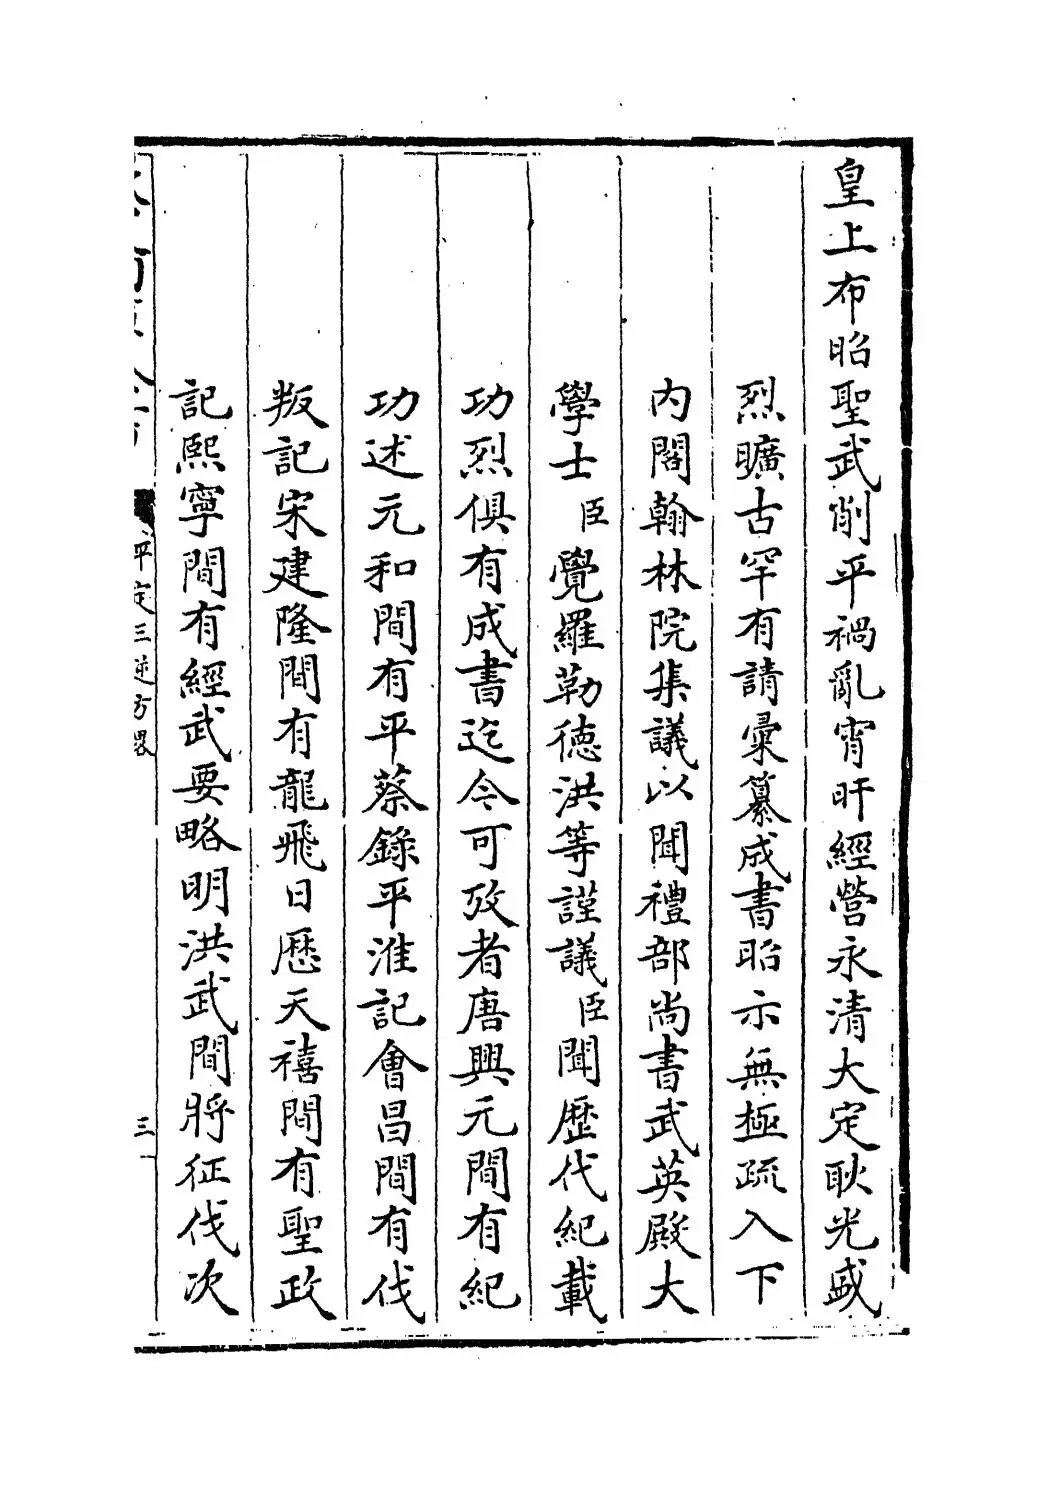 皇上布昭聖武削平禍亂宵旰經營永清大定耿光盛
烈曠古罕有請彙纂成書昭示無極疏入下
内閣翰林院集議以聞禮部尚書武英殿大
學士臣覺羅勒德洪等謹議臣聞歷代紀載
功烈俱有成書迄今可攷者唐興元間有紀
功述元和間有平蔡錄平淮記會昌間有伐
叛記宋建隆間有龍飛日歷天禧間有聖政
記熙寧間有經武要略明洪武間將征伐次
平定三逆方畧
三